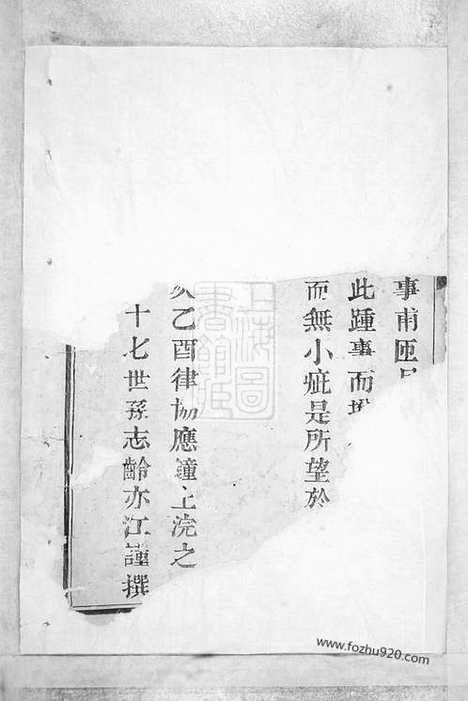 事甫匝月
此踵事而增
而無小疵是所望於
乙酉律協應鐘上浣之
十七世孫志齡亦江謹撰
上海圖書館藏
www.fozhu920.com